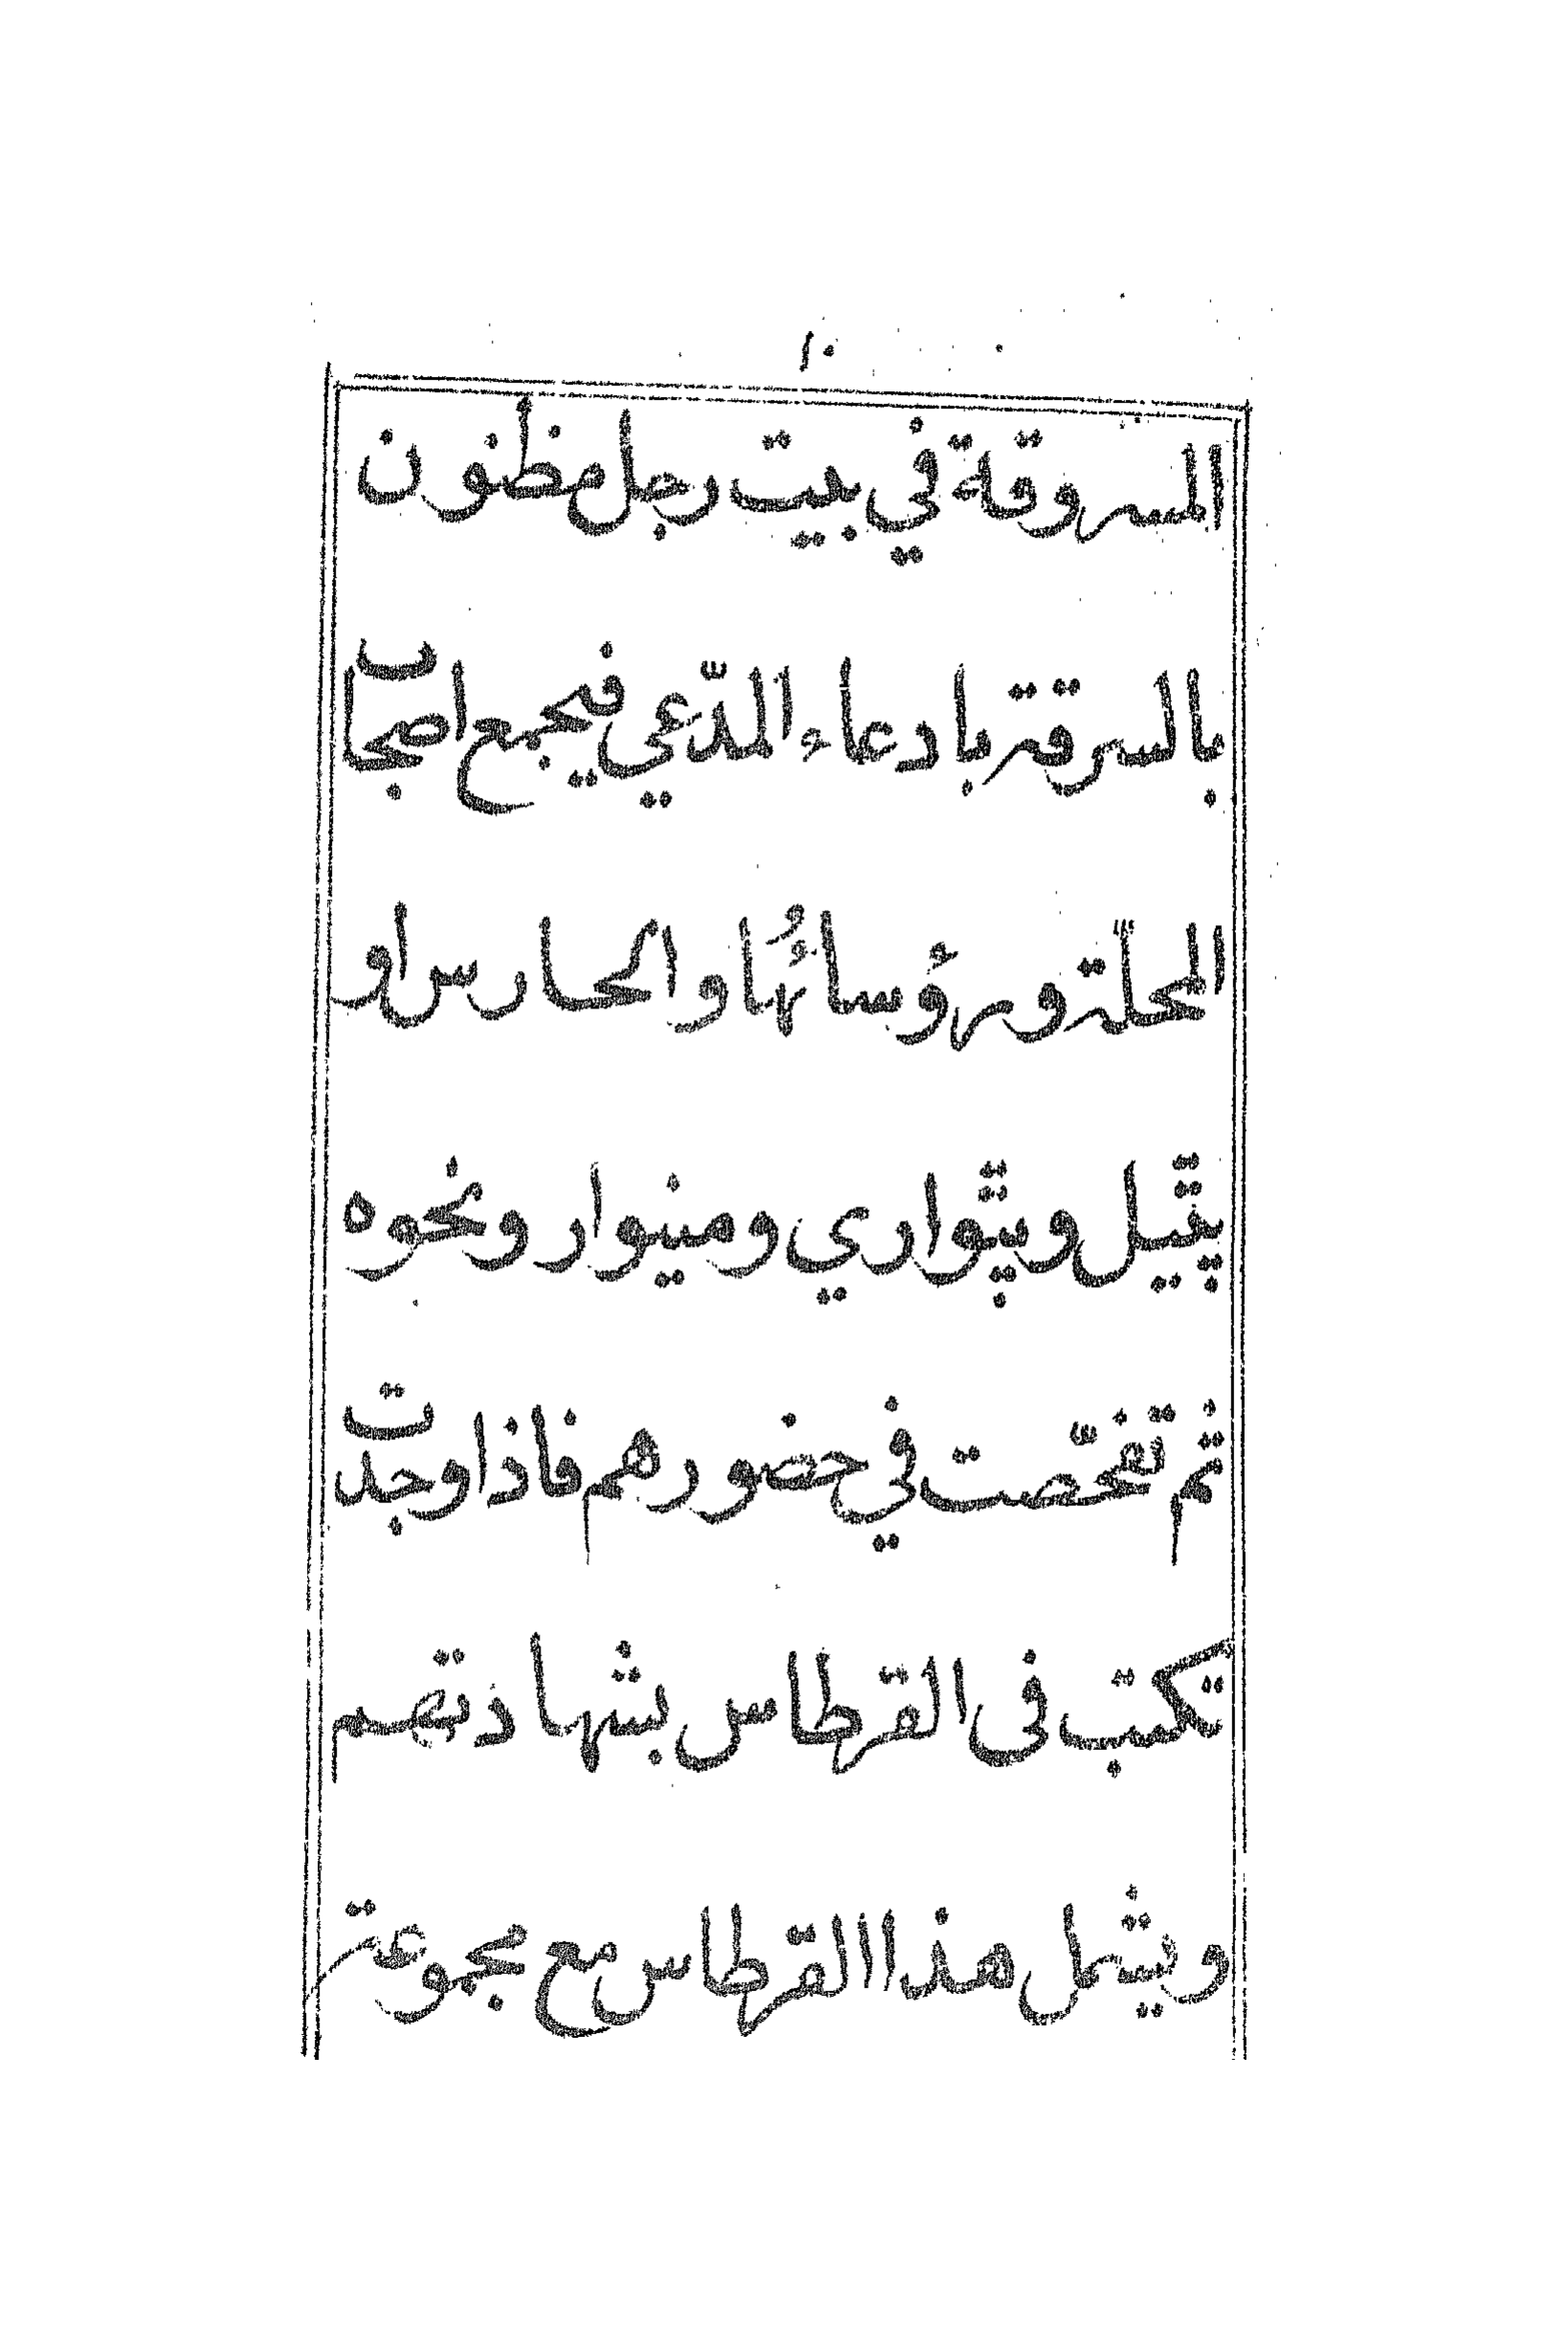 ١٠
المسروقة في بيت رجل مظنون
بالسرقة بادعاء المدّعي فيجمع اصحاب
المحلّة ورؤسائهُا والحارس او
پٹیل وپٹواري ومنيوار ونحوه
ثم تفحّصت في حضورهم فاذا وجدت
تكتب فى القرطاس بشهادتهم
ويشمل هذا القرطاس مع مجموعة